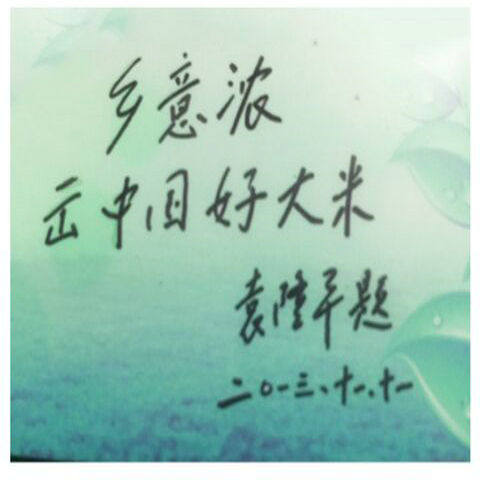 乡意浓
云中国好大米
袁隆平题
二〇一三、十一、十一